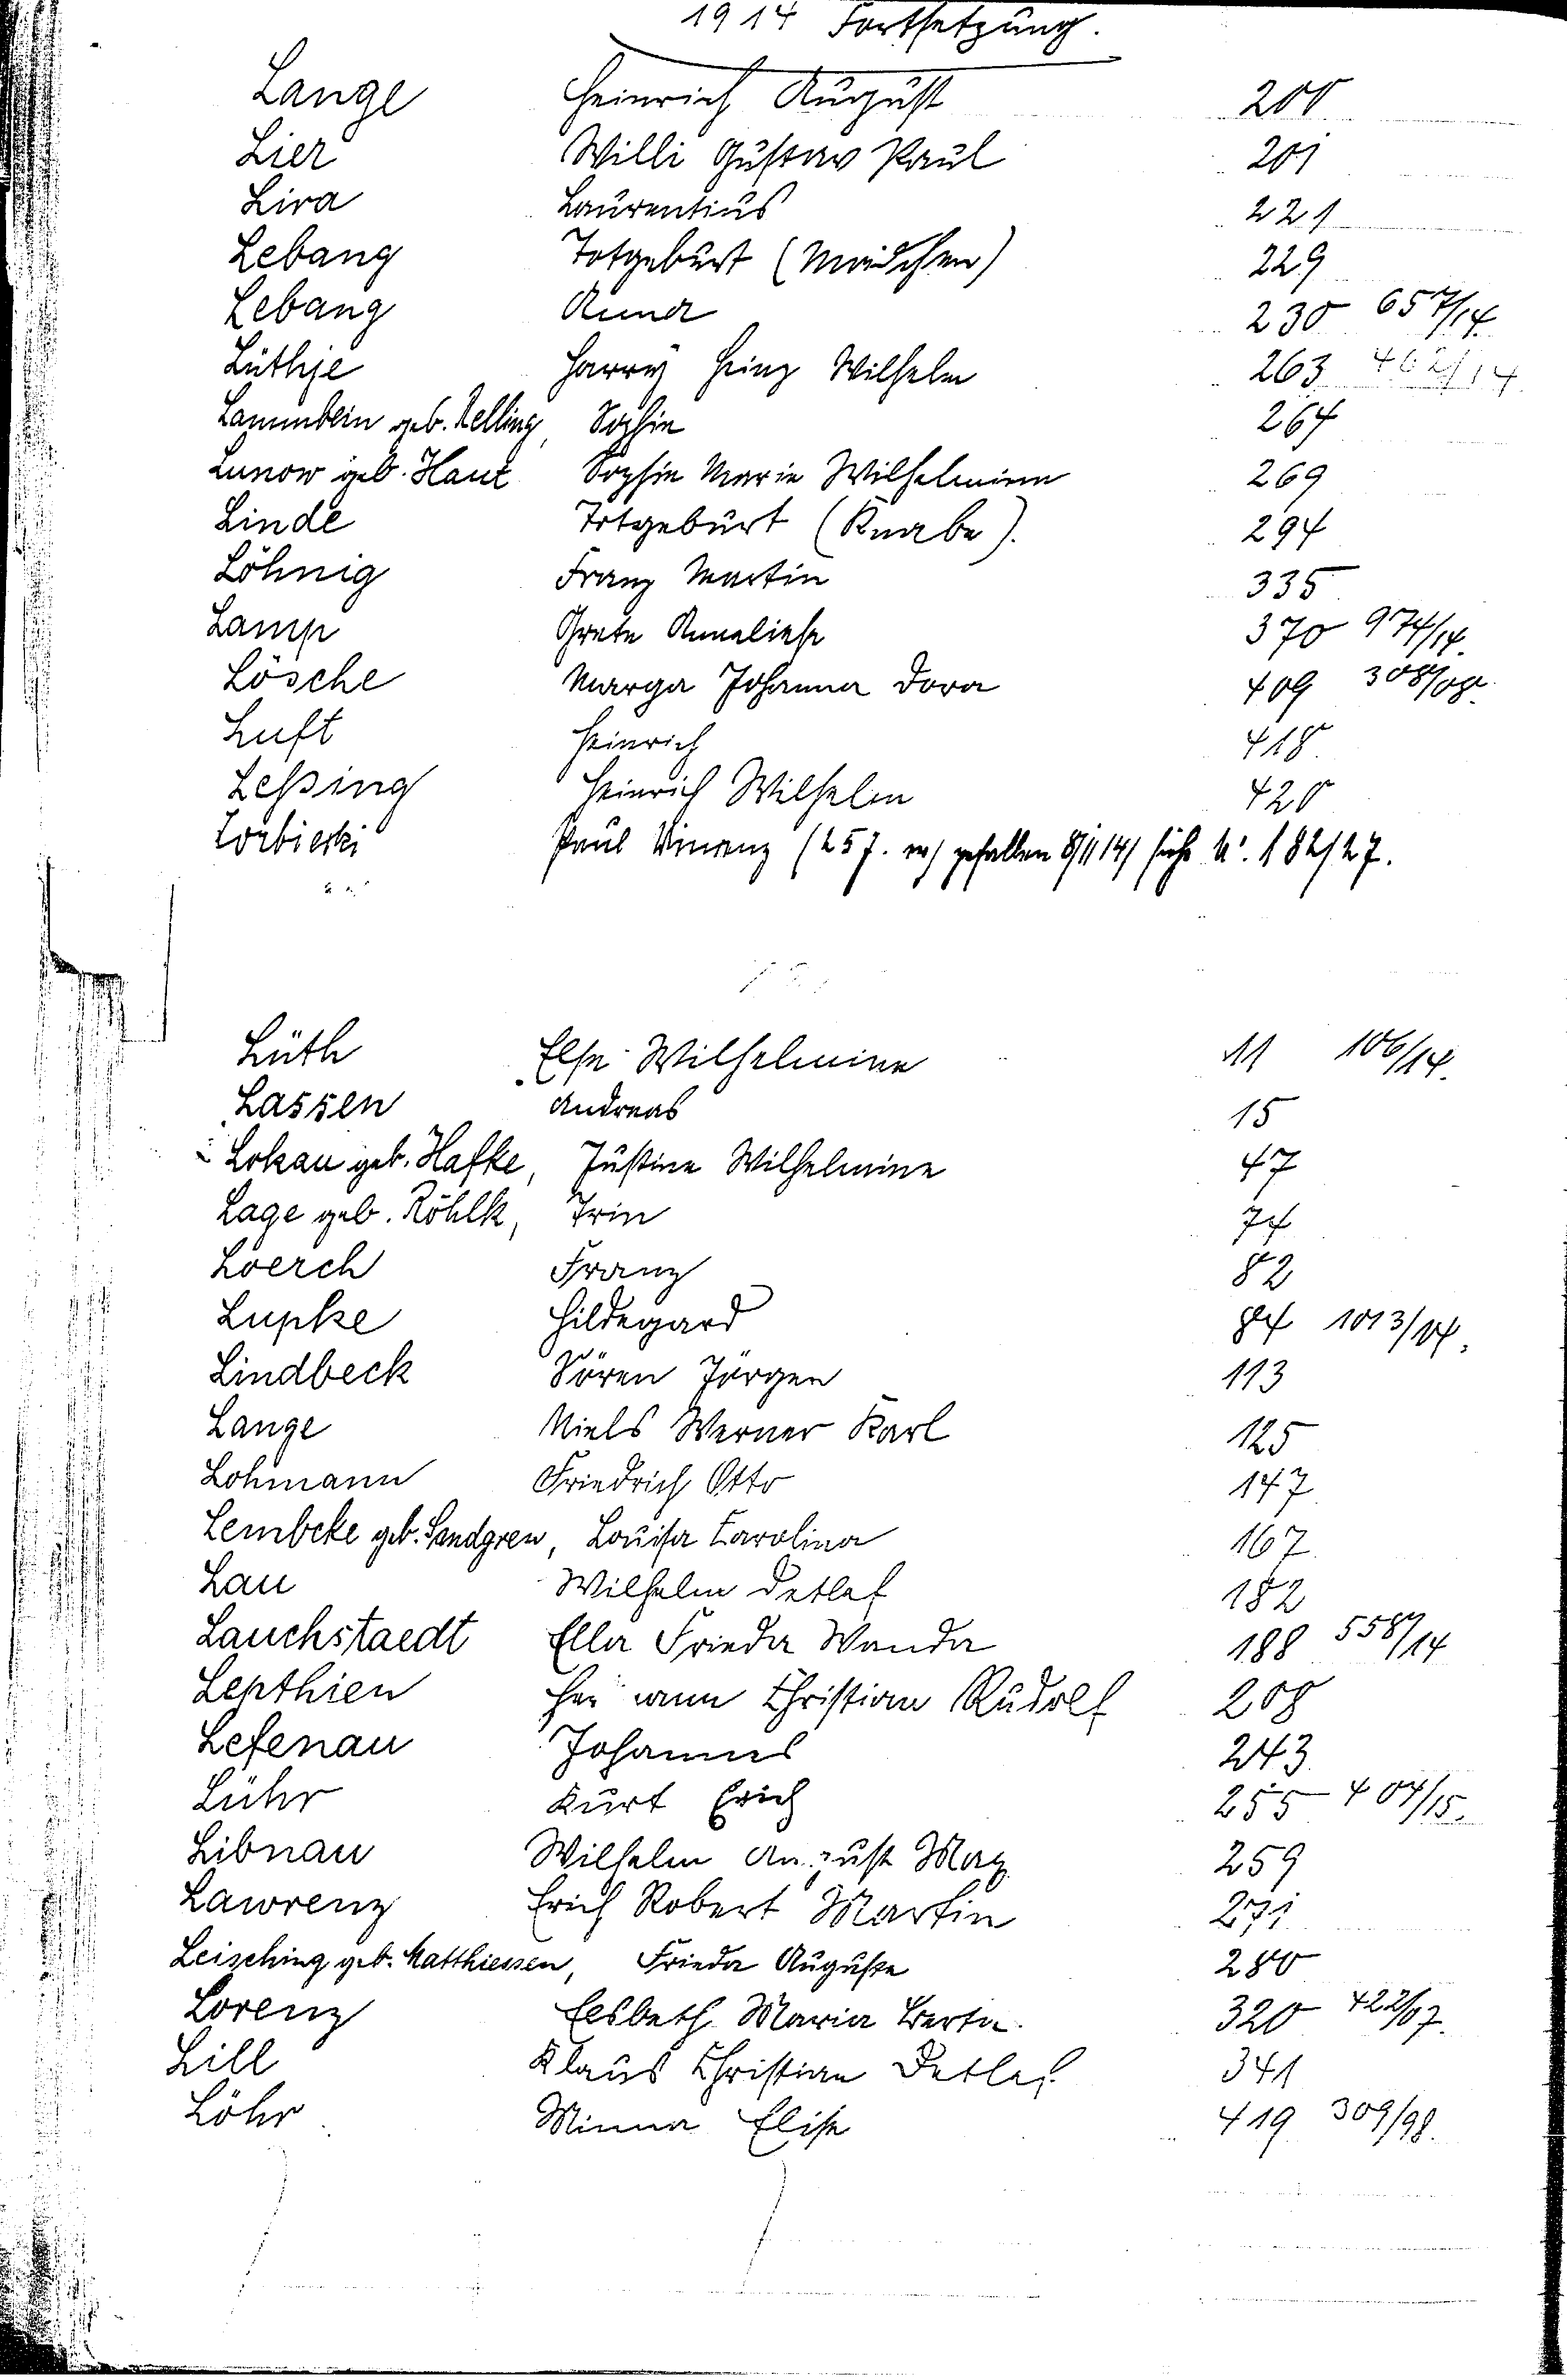 1914 Fortsetzung.
Lange Heinrich August 200
Lier Willi Gustav Paul 201
Lira Laurentius 221
Lebang Totgeburt (Mädchen) 229
Lebang Anna 230 657/14.
Lüthje Harry Heinz Wilhelm 263 462/14
Lammbein geb. Relling, Sophie 264
Lunow geb. Haut Sophie Marie Wilhelmine 269
Linde Totgeburt (Knabe). 294
Löhnig Franz Martin 335
Lamp Grete Anneliese 370 974/14.
Lösche Marga Johanna Dora 409 308/08.
Luft Heinrich 418
Leßing Heinrich Wilhelm 420
Paul (25 J. gefallen 8/11 14) siehe Nr. 182/27.
Lüth Else Wilhelmine 11 106/14.
Lassen Andreas 15
Lokau geb. Hafke, Justine Wilhelmine 47
Lage geb. Röhlk, Trin 74
Loerch Franz 82
Lupke Hildegard 84 1013/14.
Lindbeck Sören Jörgen 113
Lange Niels Werner Karl 125
Lohmann Friedrich Otto 147
Lembcke geb. Sandgren, Louisa Carolina 167
Lau Wilhelm Detlef 182
Lauchstaedt Ella Frieda Wanda 188 558/14
Lepthien Christian Rudolf 208
Lefenau Johannes 243
Lühr Kurt Erich 255 404/15.
Libnau Wilhelm August Max 259
Lawrenz Erich Robert Martin 271
Leisching geb. Matthiessen, Frieda Auguste 280
Lorenz Elsbeth Maria Berta. 320 422/07.
Lill Klaus Christian Detlef 341
Löhr Minna Elise 419 309/98.